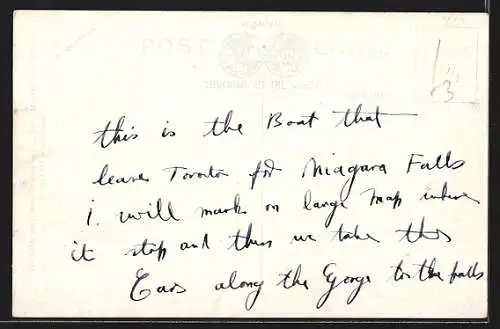 POST
1
3
this is the Boat that
leave Toronto for Niagara Falls
i will mark on large map where
it stop and then we take the
Cars along the Gorge to the falls